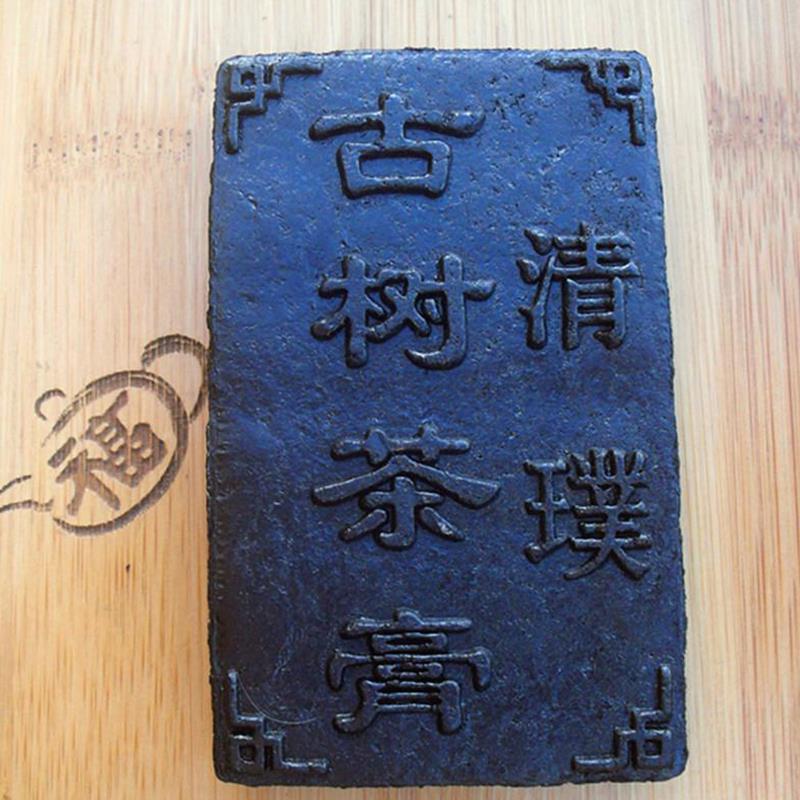 清璞
古树茶膏
福